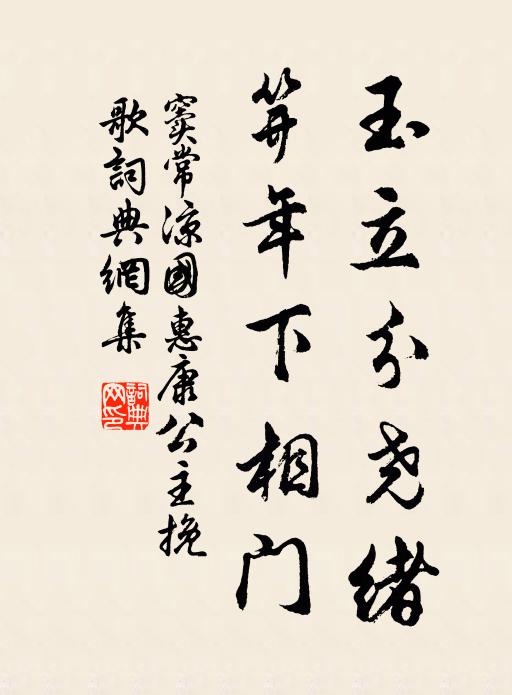 玉立分尧緒
笄年下相門
窦常凉國惠康公主挽
歌詞典網集
詞典
网印